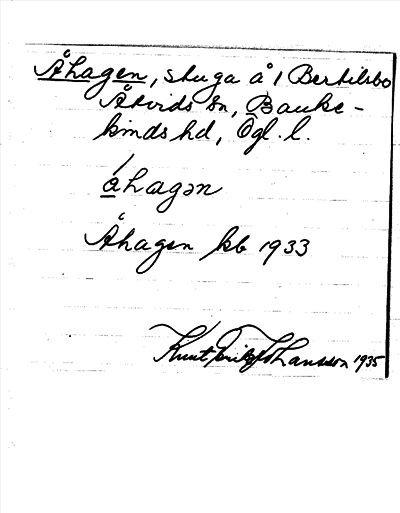 Åhagen, stuga å 1 Bertilsbo
Åtvids sn, Banke-
kinds hd, Ögl. l.
åhagən
Åhagen kb 1933
Knut Johansson 1935